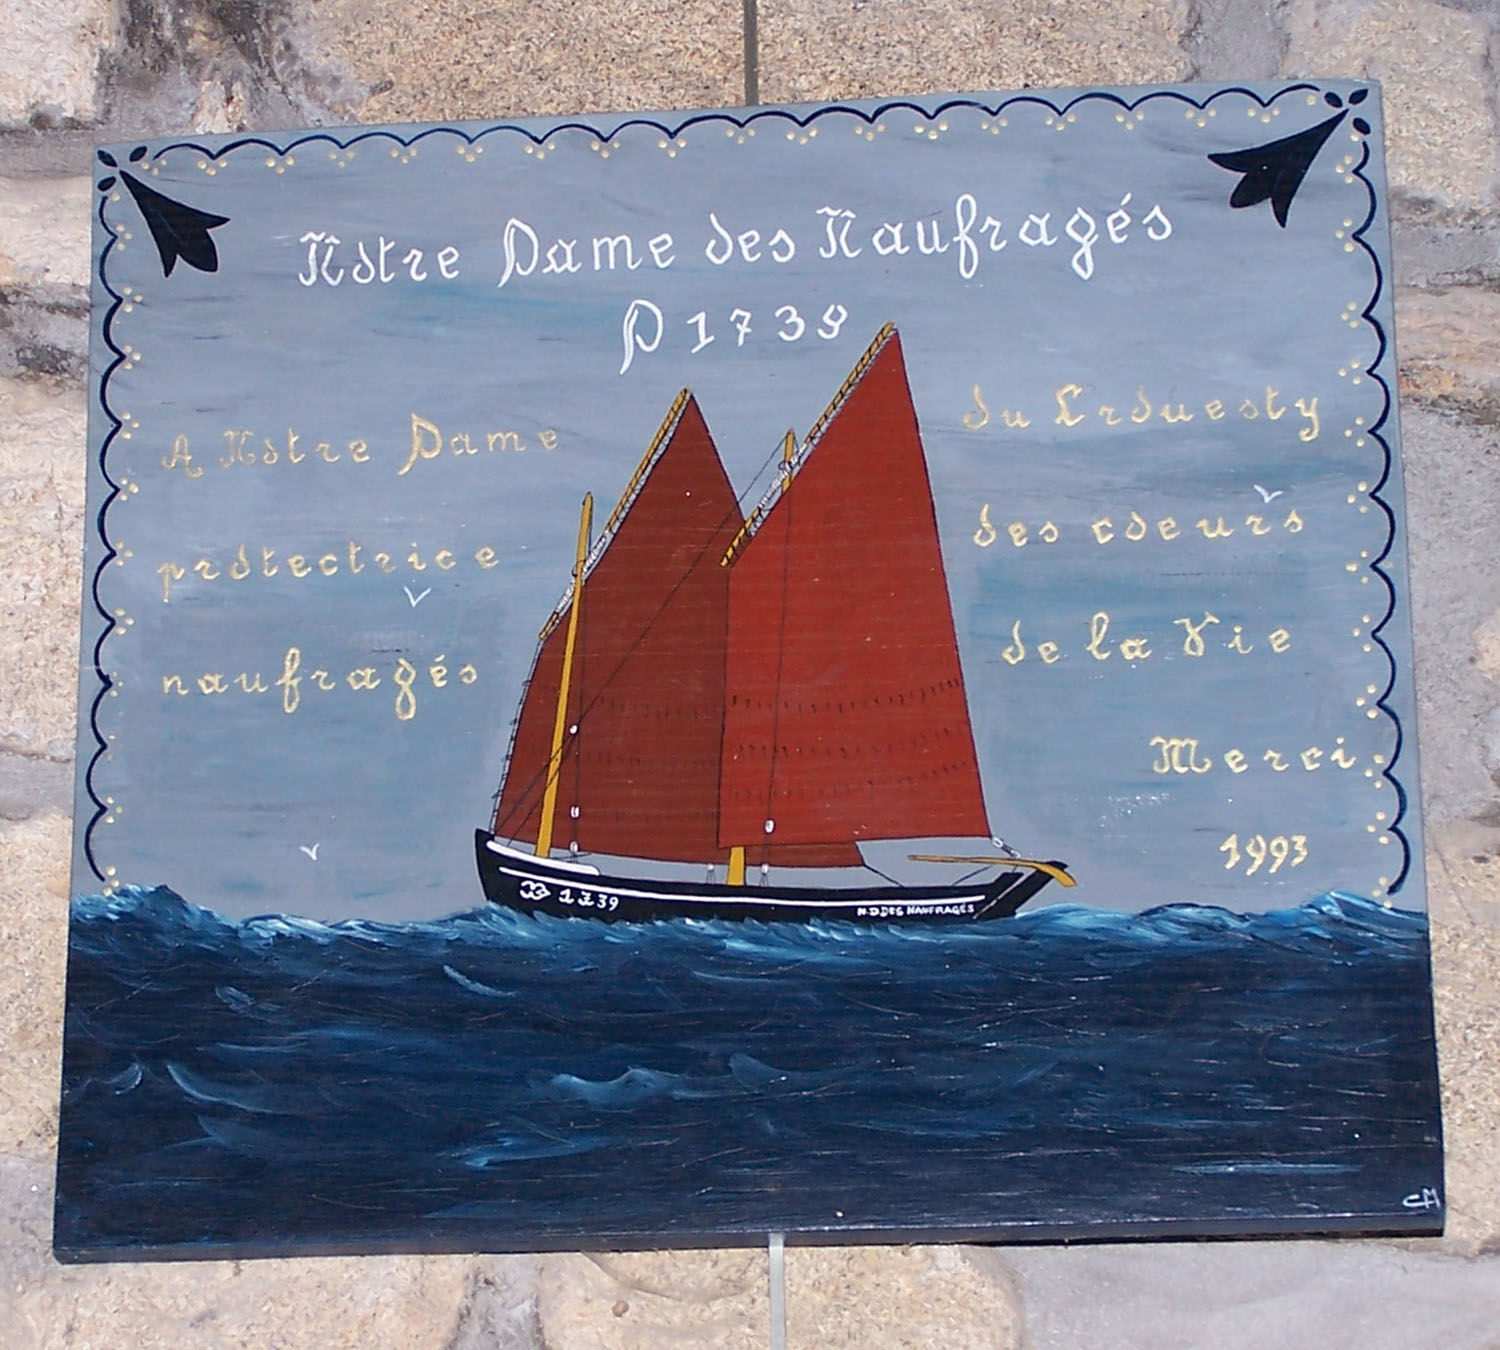 Notre Dame des Naufragés
P 1739
A Notre Dame
protectrice
naufragés
du Crouesty
des coeurs
de la Vie
Merci
1993
1739
N.D.DES NAUFRAGÉS
CM